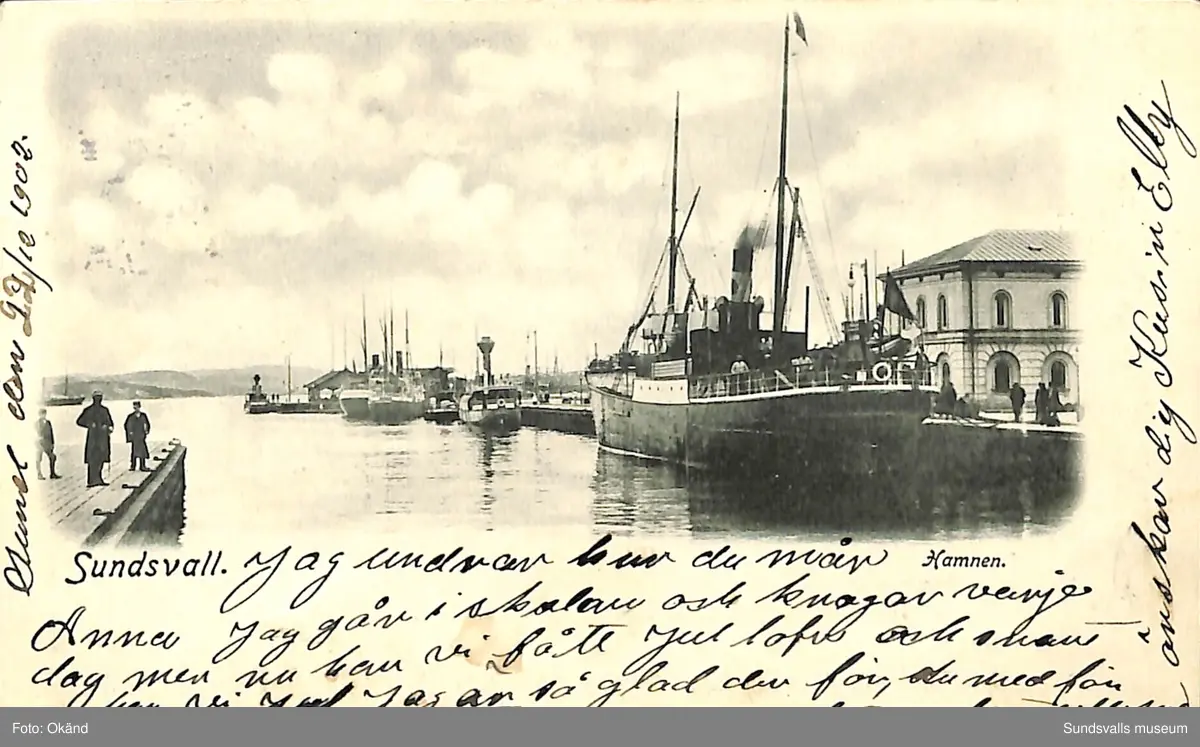 Sund den 22/12 1902.
Sundsvall. Jag undrar hur du mår
Hamnen.
Anna Jag går i skolan och knogar varje
dag men nu han vi fått Jul lofv och snart
har vi Jul Jag är så glad der för, du med för
önskar dig Kusin Elly
Foto: Okänd
Sundsvalls museum